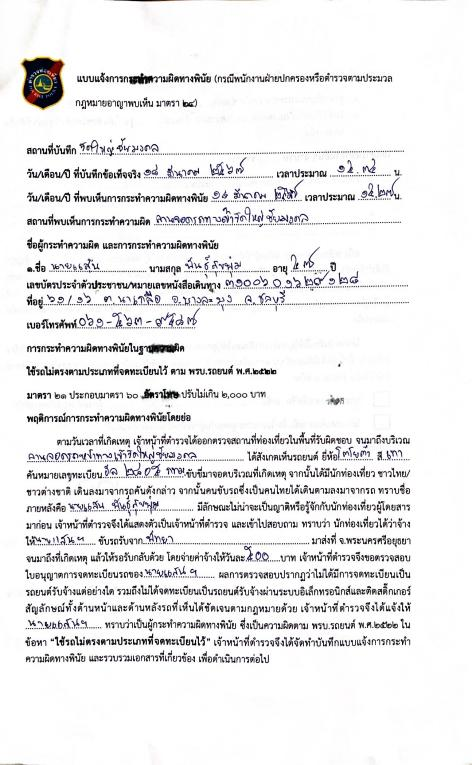 แบบแจ้งการกระทำความผิดทางพินัย (กรณีพนักงานฝ่ายปกครองหรือตำรวจตามประมวล
กฎหมายอาญาพบเห็น มาตรา ๒๔)
สถานที่บันทึก วัดใหญ่ชัยมงคล
วัน/เดือน/ปี ที่บันทึกข้อเท็จจริง ๑๘ ธันวาคม ๒๕๖๗ เวลาประมาณ ๑๕.๓๕ น.
วัน/เดือน/ปี ที่พบเห็นการกระทำความผิดทางพินัย ๑๘ ธันวาคม ๒๕๖๗ เวลาประมาณ ๑๕.๒๗ น.
สถานที่พบเห็นการกระทำความผิด ลานจอดรถทางเข้าวัดใหญ่ชัยมงคล
ชื่อผู้กระทำความผิด และการกระทำความผิดทางพินัย
๑.ชื่อ นายแสน นามสกุล พันธุ์ อายุ ๕๗ ปี
เลขบัตรประจำตัวประชาชน/หมายเลขหนังสือเดินทาง
ที่อยู่ ๖๑/๑๖ ต.นาเกลือ อ.บางละมุง จ.ชลบุรี
เบอร์โทรศัพท์ ๐๖๑-๕๖๓-๙๕๔๗
การกระทำความผิดทางพินัยในฐานความผิด
ใช้รถไม่ตรงตามประเภทที่จดทะเบียนไว้ ตาม พรบ.รถยนต์ พ.ศ.๒๕๒๒
มาตรา ๒๑ ประกอบมาตรา ๖๐ อัตราโทษ ปรับไม่เกิน ๒,๐๐๐ บาท
พฤติการณ์การกระทำความผิดทางพินัยโดยย่อ
ตามวันเวลาที่เกิดเหตุ เจ้าหน้าที่ตำรวจได้ออกตรวจสถานที่ท่องเที่ยวในพื้นที่รับผิดชอบ จนมาถึงบริเวณ
ลานจอดรถหน้าทางเข้าวัดใหญ่ชัยมงคล ได้สังเกตเห็นรถยนต์ ยี่ห้อ โตโยต้า สี เทา
คันหมายเลขทะเบียน ๒๘๐๕ กทม ขับขี่มาจอดบริเวณที่เกิดเหตุ จากนั้นได้มีนักท่องเที่ยว ชาวไทย/
ชาวต่างชาติ เดินลงมาจากรถคันดังกล่าว จากนั้นคนขับรถซึ่งเป็นคนไทยได้เดินตามลงมาจากรถ ทราบชื่อ
ภายหลังคือ นายแสน พันธุ์ มีลักษณะไม่น่าจะเป็นญาติหรือรู้จักกับนักท่องเที่ยวผู้โดยสาร
มาก่อน เจ้าหน้าที่ตำรวจจึงได้แสดงตัวเป็นเจ้าหน้าที่ตำรวจ และเข้าไปสอบถาม ทราบว่า นักท่องเที่ยวได้ว่าจ้าง
ให้ นายแสนฯ ขับรถรับจาก พัทยา มาส่งที่ จ.พระนครศรีอยุธยา
จนมาถึงที่เกิดเหตุ แล้วให้รอรับกลับด้วย โดยจ่ายค่าจ้างให้วันละ ๕๐๐ บาท เจ้าหน้าที่ตำรวจจึงขอตรวจสอบ
ใบอนุญาตการจดทะเบียนรถของ นายแสนฯ ผลการตรวจสอบปรากฏว่าไม่ได้มีการจดทะเบียนเป็น
รถยนต์รับจ้างแต่อย่างใด รวมถึงไม่ได้จดทะเบียนเป็นรถยนต์รับจ้างผ่านระบบอิเล็กทรอนิกส์และติดสติ๊กเกอร์
สัญลักษณ์ทั้งด้านหน้าและด้านหลังรถที่เห็นได้ชัดเจนตามกฎหมายด้วย เจ้าหน้าที่ตำรวจจึงได้แจ้งให้
นายแสนฯ ทราบว่าเป็นผู้กระทำความผิดทางพินัย ซึ่งเป็นความผิดตาม พรบ.รถยนต์ พ.ศ.๒๕๒๒ ใน
ข้อหา “ใช้รถไม่ตรงตามประเภทที่จดทะเบียนไว้” เจ้าหน้าที่ตำรวจจึงได้จัดทำบันทึกแบบแจ้งการกระทำ
ความผิดทางพินัย และรวบรวมเอกสารที่เกี่ยวข้อง เพื่อดำเนินการต่อไป